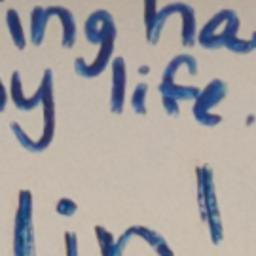 ing ha
y life.
lin'